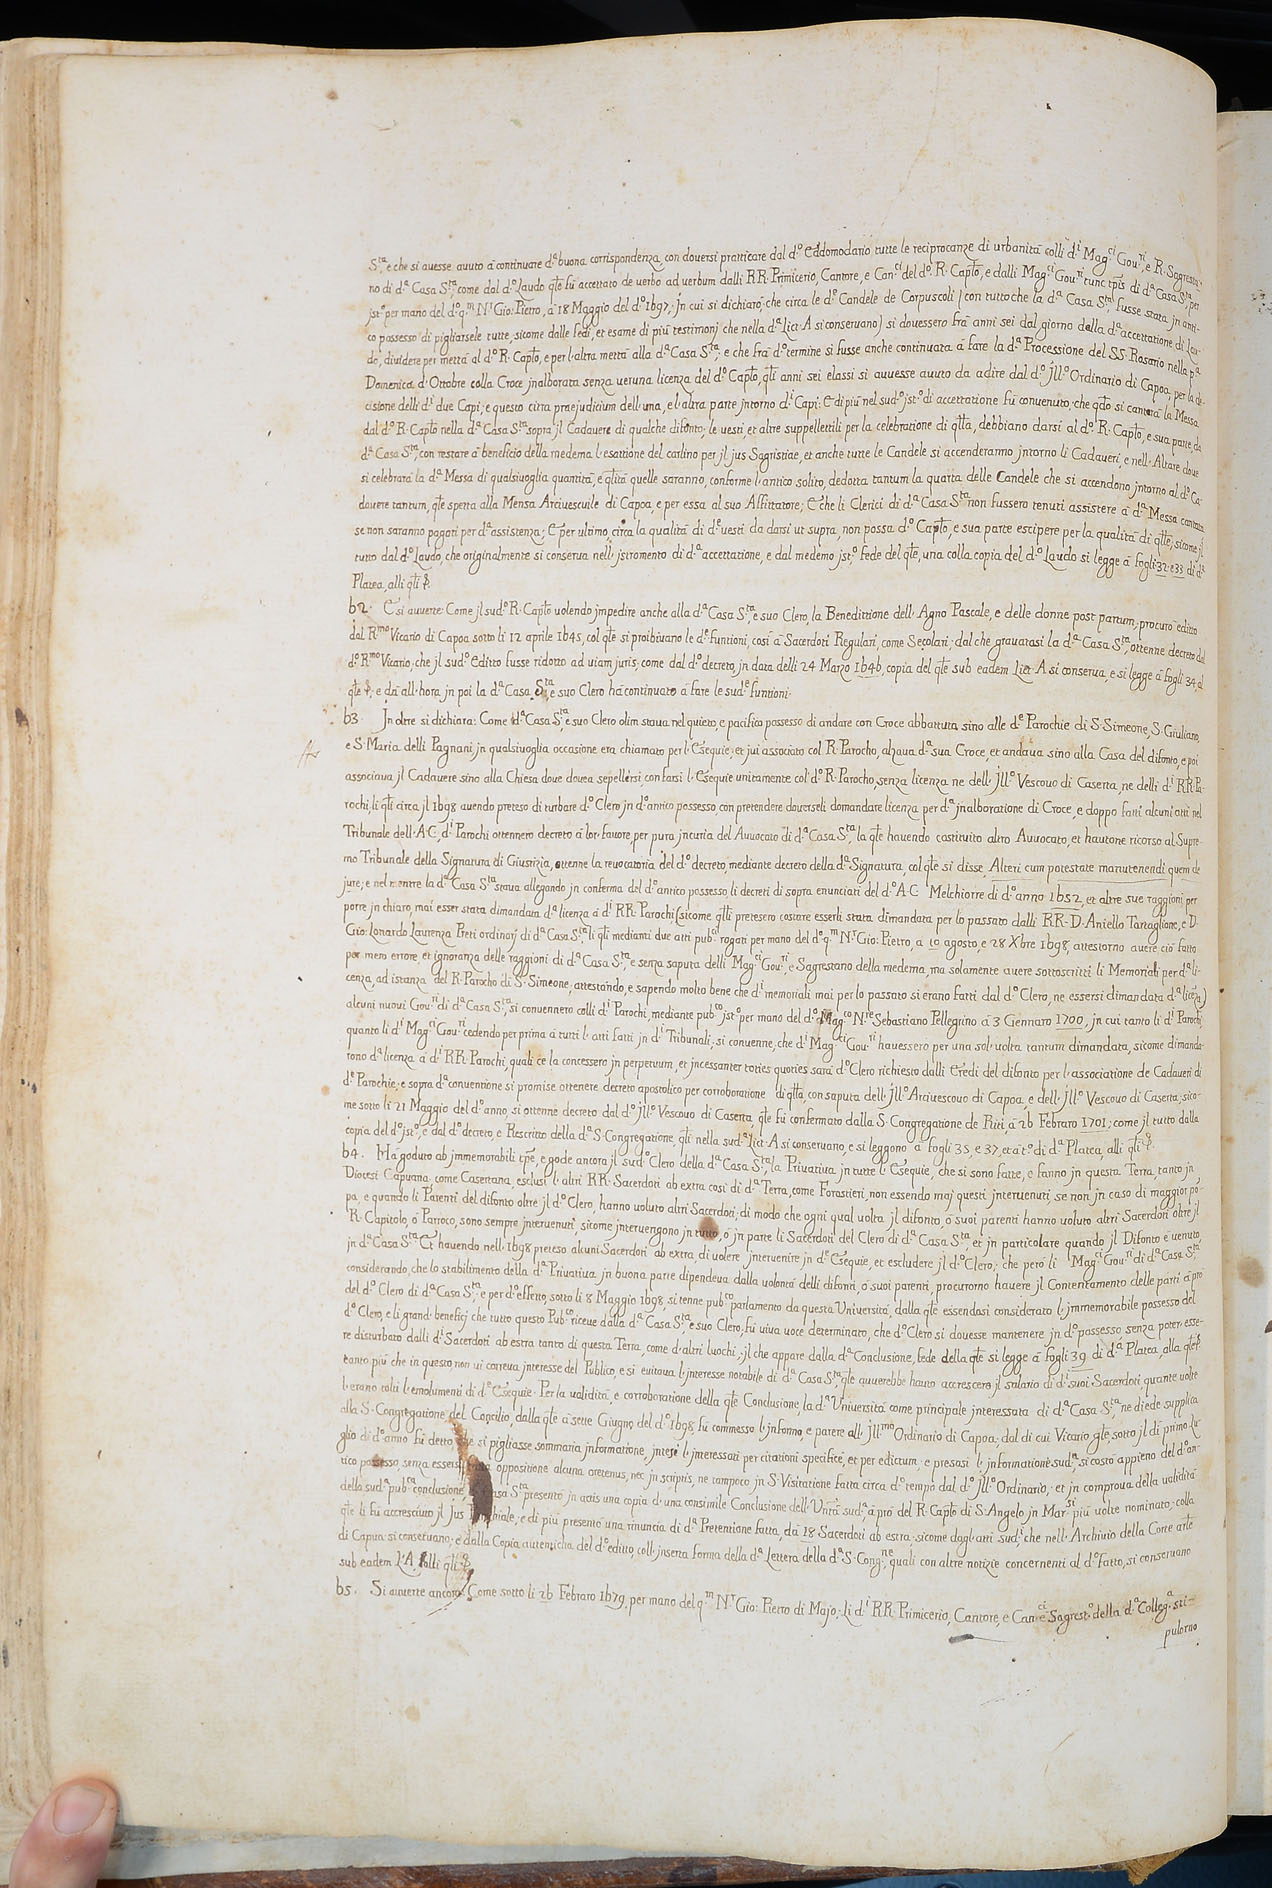 S.ta, e che si auesse auuto à continuare d.a buona corrispondenza, con douersi pratticare dal d.o Eddomodario tutte le reciprocanze di urbanità colli d.i Mag.ci Gou.ri, e R. Sagresta-
no di d.a Casa S.ta, come dal d.o Laudo q̃le fù accettato de verbo ad verbum dalli RR. Primicerio, Cantore, e Can.ci del d.o R. Cap̃lo, e dalli Mag.ci Gou.ri tunc tp̃is di d.a Casa S.ta, per
jst.o per mano del d.o q.m N.r Gio: Pietro, à 18 Maggio del d.o 1697; Jn cui si dichiarò, che circa le d.e Candele de Corpuscoli (con tutto che la d.a Casa S.ta fusse stata jn anti-
co possesso di pigliarsele tutte, sicome dalle fedi, et esame di più testimonj che nella d.a Lict. A si conseruano) si douessero frà anni sei dal giorno della d.a accettatione di Lau-
do, diuidere per mettà al d.o R. Cap̃lo, e per l'altra mettà alla d.a Casa S.ta; e che frà d.o termine si fusse anche continuata à fare la d.a Processione del SS. Rosario nella p.a
Domenica d'Ottobre colla Croce jnalborata senza ueruna licenza del d.o Cap̃lo, q̃li anni sei elassi si auuesse auuto da adire dal d.o Jll.o Ordinario di Capoa, per la de-
cisione delli d.i due Capi; e questo citra praejudicium dell'una, e l'altra parte jntorno d.i Capi: E di più nel sud.o jst.o di accettatione fù conuenuto, che q̃do si canterà la Messa
dal d.o R. Cap̃lo nella d.a Casa S.ta sopra jl Cadauere di qualche difonto, le uesti, et altre suppellettili per la celebratione di q̃lla, debbiano darsi al d.o R. Cap̃lo, e sua parte, da
d.a Casa S.ta, con restare à beneficio della medema l'esattione del carlino per jl jus Sagristiae, et anche tutte le Candele si accenderanno jntorno li Cadaueri, e nell'Altare doue
si celebrarà la d.a Messa di qualsiuoglia quantità, e q̃lità quelle saranno, conforme l'antico solito, dedotta tantum la quarta delle Candele che si accendono jntorno al d.o Ca-
dauere tantum, q̃le spetta alla Mensa Arciuescouile di Capoa, e per essa al suo Affittatore; E che li Clerici di d.a Casa S.ta non fussero tenuti assistere à d.a Messa cantata
se non saranno pagati per d.a assistenza; E per ultimo, circa la qualità di d.e uesti da darsi ut supra, non possa d.o Cap̃lo, e sua parte escipere per la qualità di q̃lle, sicome jl
tutto dal d.o Laudo, che originalmente si conserua nell'jstromento di d.a accettatione, e dal medemo jst.o fede del q̃le, una colla copia del d.o Laudo si legge à fogli 32. e 33. di d.a
Platea, alli q̃li
62. E si auuerte: Come jl sud.o R. Cap̃lo uolendo jmpedire anche alla d.a Casa S.ta, e suo Clero, la Benedittione dell'Agno Pascale, e delle donne post partum, procurò editto
dal R.mo Vicario di Capoa sotto li 12 aprile 1645, col q̃le si proibiuano le d.e funtioni, così à Sacerdoti Regulari, come Secolari; dal che grauatasi la d.a Casa S.ta, ottenne decreto dal
d.o R.mo Vicario, che jl sud.o editto fusse ridotto ad uiam juris; come dal d.o decreto, jn data delli 24 Marzo 1646, copia del q̃le sub eadem Lict. A si conserua, e si legge à fogli 34, al
q̃le; e dà all'hora jn poi la d.a Casa S.ta, e suo Clero hà continuato à fare le sud.e funtioni.
63. Jn oltre si dichiara: Come d.a Casa S.ta, e suo Clero olim staua nel quieto, e pacifico possesso di andare con Croce abbattuta sino alle d.e Parochie di S. Simeone, S. Giuliano,
e S. Maria delli Pagnani, jn qualsiuoglia occasione era chiamato per l'Esequie; et jui associato col R. Parocho, alzaua d.a sua Croce, et andaua sino alla Casa del difonto, e poi
associaua jl Cadauere sino alla Chiesa doue douea sepellirsi, con farsi l'Esequie unitamente col d.o R. Parocho, senza licenza ne dell'Jll.o Vescouo di Caserta, ne delli d.i RR. Pa-
rochi, li q̃li circa jl 1698 auendo preteso di turbare d.o Clero jn d.o antico possesso, con pretendere douerseli domandare licenza per d.a jnalboratione di Croce, e doppo fatti alcuni atti nel
Tribunale dell'A.C. d.i Parochi ottennero decreto à lor fauore, per pura jncuria del Auuocato di d.a Casa S.ta, la q̃le hauendo costituito altro Auuocato, et hautone ricorso al Supre-
mo Tribunale della Signatura di Giustizia, ottenne la reuocatoria del d.o decreto, mediante decreto della d.a Signatura, col q̃le si disse, Alteri cum potestate manutenendi quem de
jure; e nel mentre la d.a Casa S.ta staua allegando jn conferma del d.o antico possesso li decreti di sopra enunciati del d.o A.C. Melchiorre di d.o anno 1652, et altre sue raggioni per
porre jn chiaro, mai esser stata dimandata d.a licenza à d.i RR. Parochi (sicome q̃lli pretesero costare esserli stata dimandata per lo passato dalli RR. D. Aniello Tartaglione, e D.
Gio: Lonardo Laurenza Preti ordinarj di d.a Casa S.ta, li q̃li medianti due atti pub.ci rogati per mano del d.o q.m N.r Gio: Pietro, à 10 agosto, e 28 Xbre 1698, attestorno auere ciò fatto
per mero errore, et ignoranza delle raggioni di d.a Casa S.ta, e senza saputa delli Mag.ci Gou.ri, e Sagrestano della medema, ma solamente auere sottoscritti li Memoriali per d.a li-
cenza, ad istanza del R. Parocho di S. Simeone, attestando, e sapendo molto bene che d.i memoriali mai per lo passato si erano fatti dal d.o Clero, ne essersi dimandata d.a licenza)
alcuni nuoui Gou.ri di d.a Casa S.ta, si conuennero colli d.i Parochi, mediante pub.co jst.o per mano del d.o Mag.co N.re Sebastiano Pellegrino à 3 Gennaro 1700, jn cui tanto li d.i Parochi
quanto li d.i Mag.ci Gou.ri cedendo per prima à tutti l'atti fatti jn d.i Tribunali, si conuenne, che d.i Mag.ci Gou.ri hauessero per una sol uolta tantum dimandata, sicome dimanda-
rono d.a licenza à d.i RR. Parochi, quali ce la concessero jn perpetuum, et jncessanter toties quoties sarà d.o Clero richiesto dalli Eredi del difonto per l'associatione de Cadaueri di
d.e Parochie; e sopra d.a conuentione si promise ottenere decreto apostolico per corroboratione di q̃lla, con saputa dell'Jll.o Arciuescouo di Capoa, e dell'Jll.o Vescouo di Caserta, sico-
me sotto li 21 Maggio del d.o anno, si ottenne decreto dal d.o Jll.o Vescouo di Caserta, q̃le fù confermato dalla S. Congregatione de Riti, à 26 Febraro 1701; come jl tutto dalla
copia del d.o jst.o, e dal d.o decreto, e Rescritto della d.a S. Congregatione, q̃li nella sud.a Lict. A si conseruano, e si leggono à fogli 35, e 37, et à t.o di d.a Platea, alli q̃li
64. Hà goduto ab jmmemorabili tp̃e, e gode ancora jl sud.o Clero della d.a Casa S.ta, la Priuatiua jn tutte l'Esequie, che si sono fatte, e fanno jn questa Terra, tanto jn
Diocesi Capuana, come Casertana, esclusi l'altri RR. Sacerdoti ab extra così di d.a Terra, come Forastieri, non essendo maj questi jnteruenuti, se non jn caso di maggior po-
pa, e quando li Parenti del difonto oltre jl d.o Clero, hanno uoluto altri Sacerdoti; di modo che ogni qual uolta jl difonto, ò suoi parenti hanno uoluto altri Sacerdoti oltre jl
R. Capitolo, ò Parroco, sono sempre jnteruenuti, sicome jnteruengono jn tutto, ò jn parte li Sacerdoti del Clero di d.a Casa S.ta, et jn particolare quando jl Difonto è uenuto
jn d.a Casa S.ta Et hauendo nell'1698 preteso alcuni Sacerdoti ab extra, di uolere jnteruenire jn d.e Esequie, et escludere jl d.o Clero; che però li Mag.ci Gou.ri di d.a Casa S.ta
considerando, che lo stabilimento della d.a Priuatiua jn buona parte dipendeua dalla uolontà delli difonti, ò suoi parenti, procurorno hauere jl Contentamento delle parti à prò
del d.o Clero di d.a Casa S.ta, e per d.o effetto, sotto li 8 Maggio 1698, si tenne pub.co parlamento da questa Uniuersità, dalla q̃le essendosi considerato l'jmmemorabile possesso del
d.o Clero, e li grandi beneficj che tutto questo Pub.co riceue dalla d.a Casa S.ta, e suo Clero, fù uiua uoce determinato, che d.o Clero si douesse mantenere jn d.o possesso, senza poter esse-
re disturbato dalli d.i Sacerdoti ab estra tanto di questa Terra, come d'altri luochi; jl che appare dalla d.a Conclusione, fede della q̃le si legge à fogli 39 di d.a Platea, alla q̃le
tanto più che in questo non ui correua jnteresse del Publico, e si euitaua l'jnteresse notabile di d.a Casa S.ta, q̃le auuerebbe hauto accrescere jl salario di d.i suoi Sacerdoti, quante uolte
l'erano tolti l'emolumenti di d.e Esequie. Per la ualidità, e corroboratione della q̃le Conclusione, la d.a Uniuersità come principale jnteressata di d.a Casa S.ta, ne diede supplica
alla S. Congregatione del Concilio, dalla q̃le à sette Giugno del d.o 1698, fù commesso l'jnformo, e parere all'Jll.mo Ordinario di Capoa; dal di cui Vicario g̃le, sotto jl dì primo Lu-
glio di d.o anno fù detto che si pigliasse sommaria jnformatione, jntesi l'jnteressati per citationi specificè, et per edictum; e presasi l'jnformatione sud.a, si costò appieno del d.o an-
tico possesso, senza essersi opposittione alcuna oretenus, nec jn scriptis, ne tampoco jn S. Visitatione fatta circa d.o tempo dal d.o Jll.o Ordinario; et jn comproua della ualidità
della sud.a pub.ca conclusione, Casa S.ta presentò jn actis una copia d'una consimile Conclusione dell'Un.tà sud.a, à prò del R. Cap̃lo di S. Angelo jn Mar.si più uolte nominato; colla
q̃le li fù accresciuto jl Jus; e di più presentò una rinuncia di d.a Pretentione fatta, dà 18 Sacerdoti ab estra; sicome dagl'atti sud.i, che nell'Archiuio della Corte arc̃le
di Capua si conseruano; e dalla Copia autenticha del d.o editto, coll'jnserta forma della d.a Lettera della d.a S. Cong.ne, quali con altre notizie concernenti al d.o fatto, si conseruano
sub eadem L.A. alli q̃li
65. Si auuerte ancora: Come sotto li 26 Febraro 1679, per mano del q.m N.r Gio: Pietro di Majo, Li d.i RR. Primicerio, Cantore, e Can.ci e Sagrest.o della d.a Colleg.a sti-
pulorno